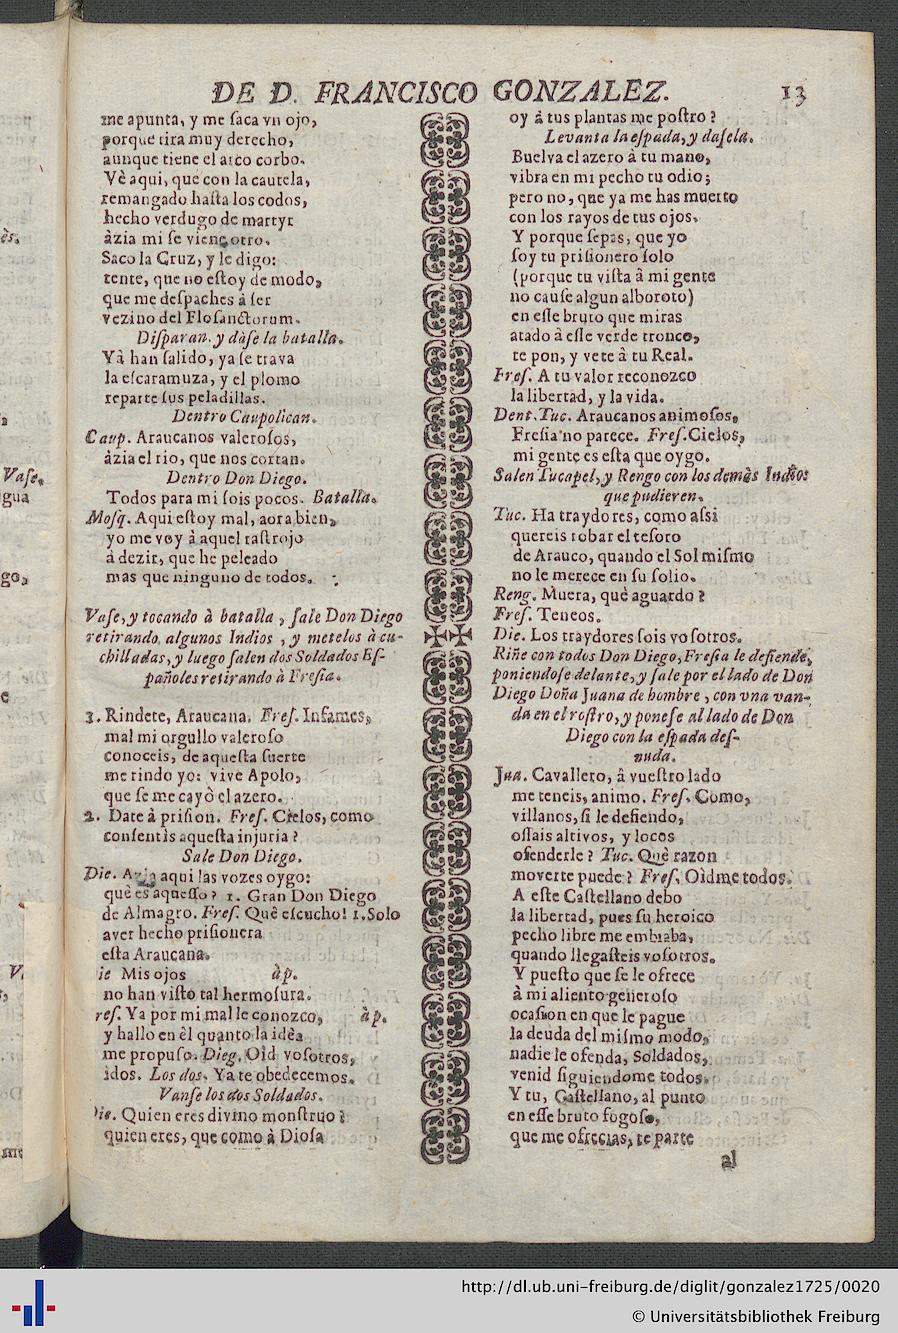 DE D. FRANCISCO GONZALEZ. 13
me apunta, y me ſaca vn ojo,
porque tira muy derecho,
aunque tiene el arco corbo.
Vè aqui, que con la cautela,
remangado haſta los codos,
hecho verdugo de martyr
àzia mi ſe viene otro.
Saco la Cruz, y le digo:
tente, que no eſtoy de modo,
que me deſpaches à ſer
vezino del Floſanctorum.
Diſparan. y dàſe la batalla.
Yà han ſalido, ya ſe trava
la eſcaramuza, y el plomo
reparte ſus peladillas.
Dentro Caupolican.
Caup. Araucanos valeroſos,
àzia el rio, que nos cortan.
Dentro Don Diego.
Todos para mi ſois pocos. Batalla.
Moſq. Aqui eſtoy mal, aora bien,
yo me voy à aquel raſtrojo
à dezir, que he peleado
mas que ninguno de todos.
Vaſe, y tocando à batalla, ſale Don Diego
retirando algunos Indios, y metelos à cu-
chilladas, y luego ſalen dos Soldados Eſ-
pañoles retirando à Freſia.
3. Rindete, Araucana. Freſ. Infames,
mal mi orgullo valeroſo
conoceis, de aqueſta ſuerte
me rindo yo: vive Apolo,
que ſe me cayò el azero.
2. Date à priſion. Freſ. Cielos, como
conſentìs aqueſta injuria?
Sale Don Diego.
Die. Azia aqui las vozes oygo:
què es aqueſſo? 1. Gran Don Diego
de Almagro. Freſ. Què eſcucho! 1. Solo
aver hecho priſionera
eſta Araucana.
ie Mis ojos àp.
no han viſto tal hermoſura.
reſ. Ya por mi mal le conozco, àp.
y hallo en èl quanto la idèa
me propuſo. Dieg. Oid voſotros,
idos. Los dos. Ya te obedecemos.
Vanſe los dos Soldados.
Die. Quien eres divino monſtruo?
quien eres, que como à Dioſa
oy à tus plantas me poſtro?
Levanta la eſpada, y daſela.
Buelva el azero à tu mano,
vibra en mi pecho tu odio;
pero no, que ya me has muerto
con los rayos de tus ojos.
Y porque ſepas, que yo
ſoy tu priſionero ſolo
(porque tu viſta à mi gente
no cauſe algun alboroto)
en eſſe bruto que miras
atado à eſſe verde tronco,
te pon, y vete à tu Real.
Freſ. A tu valor reconozco
la libertad, y la vida.
Dent. Tuc. Araucanos animoſos,
Freſia no parece. Freſ. Cielos,
mi gente es eſta que oygo.
Salen Tucapel, y Rengo con los demàs Indios
que pudieren.
Tuc. Ha traydores, como aſsi
quereis robar el teſoro
de Arauco, quando el Sol miſmo
no le merece en ſu ſolio.
Reng. Muera, què aguardo?
Freſ. Teneos.
Die. Los traydores ſois voſotros.
Riñe con todos Don Diego, Freſia le defiende,
poniendoſe delante, y ſale por el lado de Don
Diego Doña Juana de hombre, con vna van-
da en el roſtro, y poneſe al lado de Don
Diego con la eſpada deſ-
nuda.
Jua. Cavallero, à vueſtro lado
me teneis, animo. Freſ. Como,
villanos, ſi le defiendo,
oſſais altivos, y locos
ofenderle? Tuc. Què razon
moverte puede? Freſ. Oìdme todos.
A eſte Caſtellano debo
la libertad, pues ſu heroico
pecho libre me embiaba,
quando llegaſteis voſotros.
Y pueſto que ſe le ofrece
à mi aliento generoſo
ocaſion en que le pague
la deuda del miſmo modo,
nadie le ofenda, Soldados,
venid ſiguiendome todos.
Y tu, Caſtellano, al punto
en eſſe bruto fogoſo,
que me ofrecias, te parte
al
ès.
Vaſe.
gua
go,
http://dl.ub.uni-freiburg.de/diglit/gonzalez1725/0020
© Universitätsbibliothek Freiburg